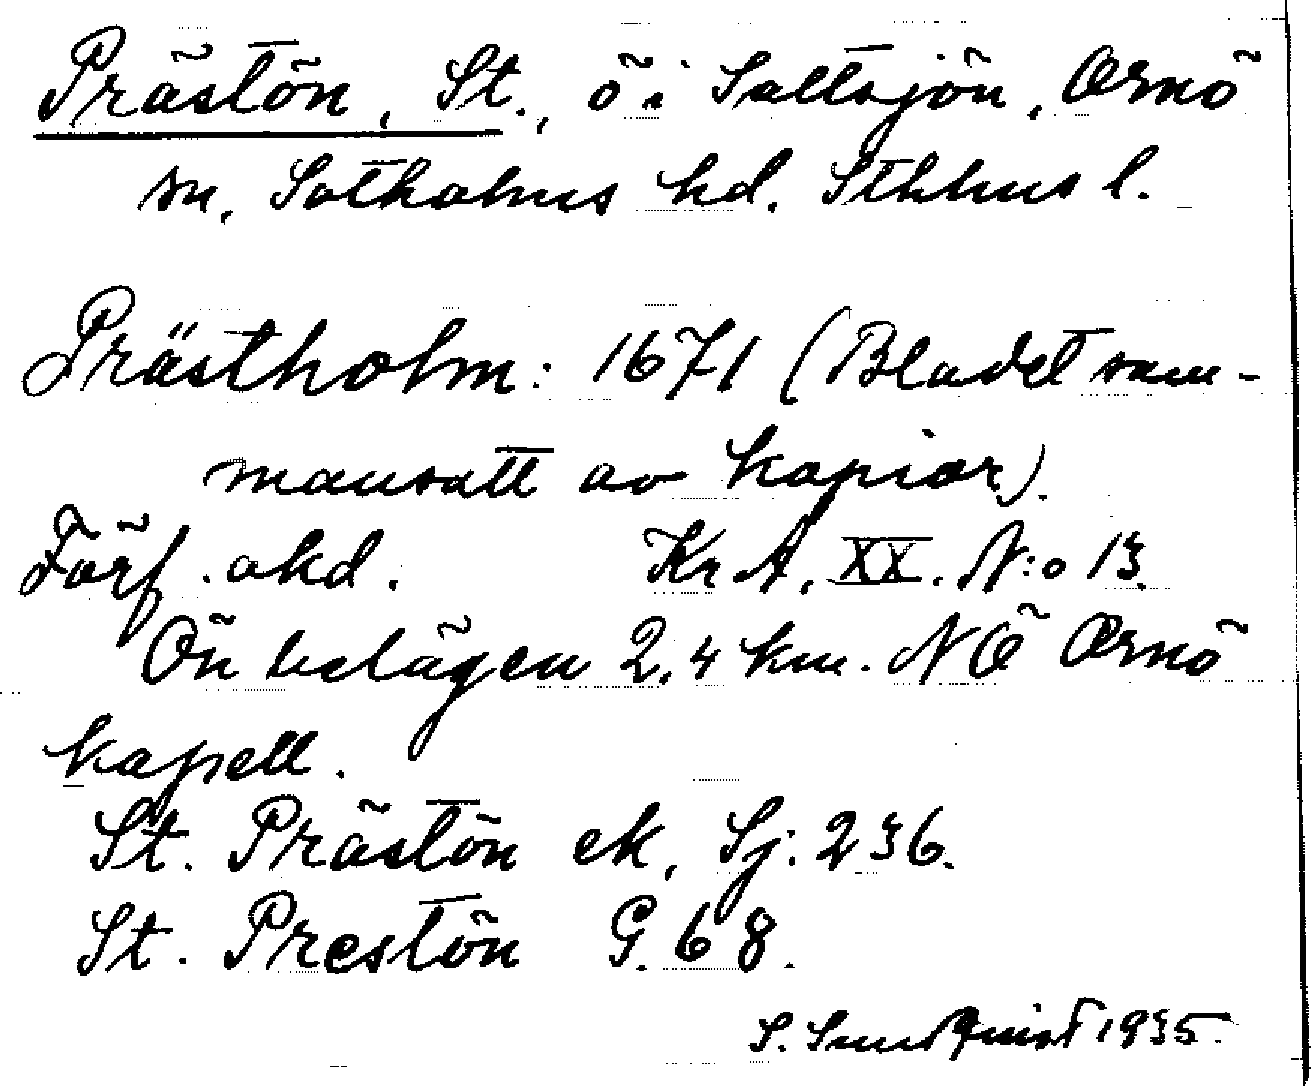 Prästön, St., ö i Saltsjön, Ornö
sn. Sotholms hd. Sthlms l.
Prästholm: 1671 (Bladet sam-
mansatt av kopior).
Förf. okd. Kr A. XX. N:o 13.
Ön belägen 2,4 km. NÖ Ornö
kapell.
St. Prästön ek, Sj: 236.
St. Prestön G. 68.
S. Sundquist 1935.